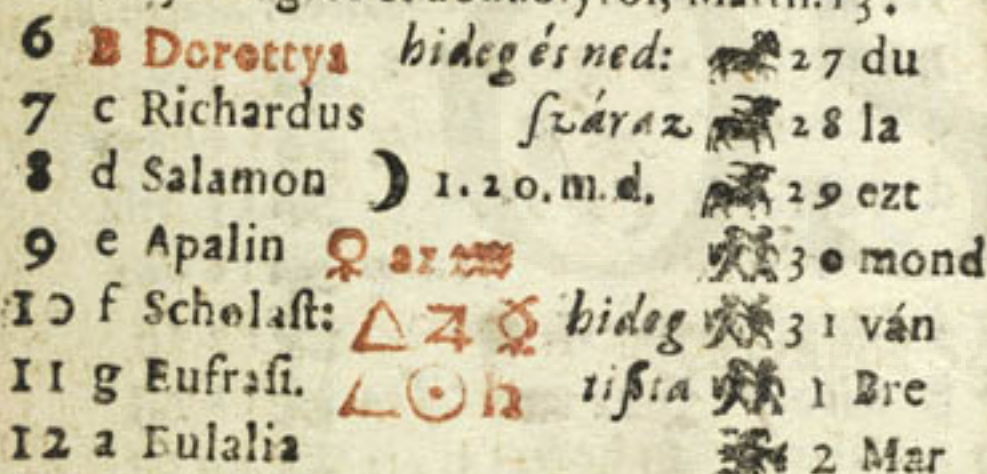 6 B Dorottya hideg és ned: 27 du
7 c Richardus ſzáraz 28 la
8 d Salamon ☽ 1.20.m.d. 29 ezt
9 e Apalin ♀ az ♒ 30 mond
10 f Scholaſt: △ ♃ ☿ hideg 31 ván
11 g Eufraſi. ∠ ☉ ♄ tißta 1 Bre
12 a Eulalia 2 Mar